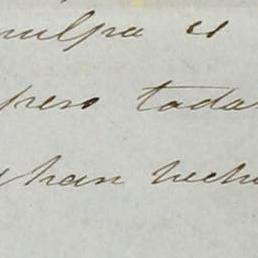 culpa es
pero toda
han hech